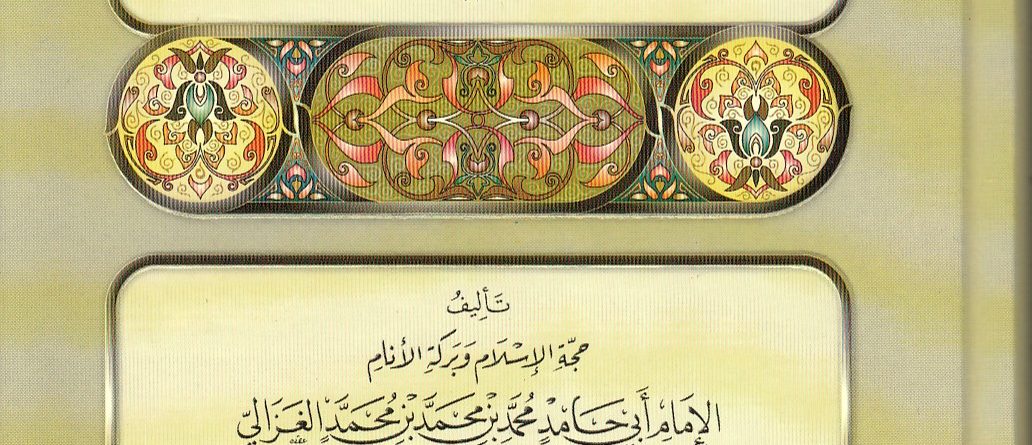 تَأليفُ
حجّة الإسْلَام وَبَركة الأنام
الإمَام أَبي حَامِدٍ مُحَمَّدِ بْنِ مُحَمَّدِ بْنِ مُحَمَّدٍ الغَزَاليّ